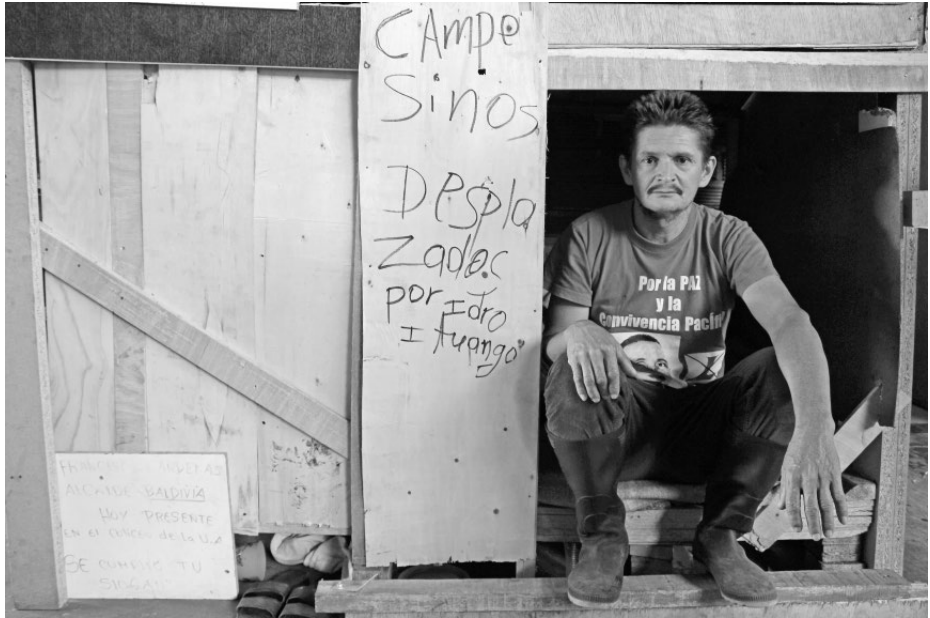 CAmpe
Sinos
Despla
Zados
por IdTro
Ituango
Por la PAZ
y la
Convivencia Pacífi
ALCALDE BALDIVIA
HOY PRESENTE
En el Coliceo de la U.A
SE CUMPLIO TU